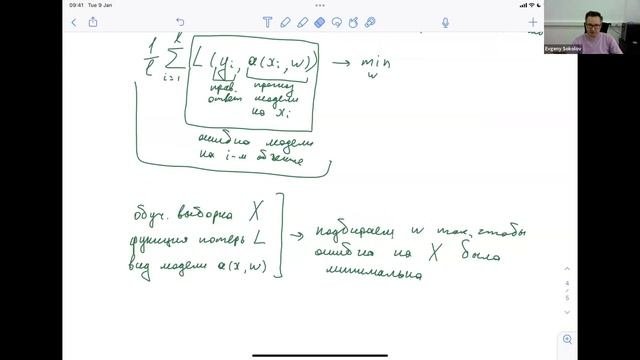 09:41 Tue 9 Jan
Evgeny Sokolov
1/ℓ ∑ i=1 ℓ L(y_i, a(x_i, w)) → min w
прав. прогноз
ответ модели
на x_i
ошибка модели
на i-м объекте
обуч. выборка X
функция потерь L
вид модели a(x, w)
→ подбираем w так, чтобы
ошибка на X была
минимальна
4
5